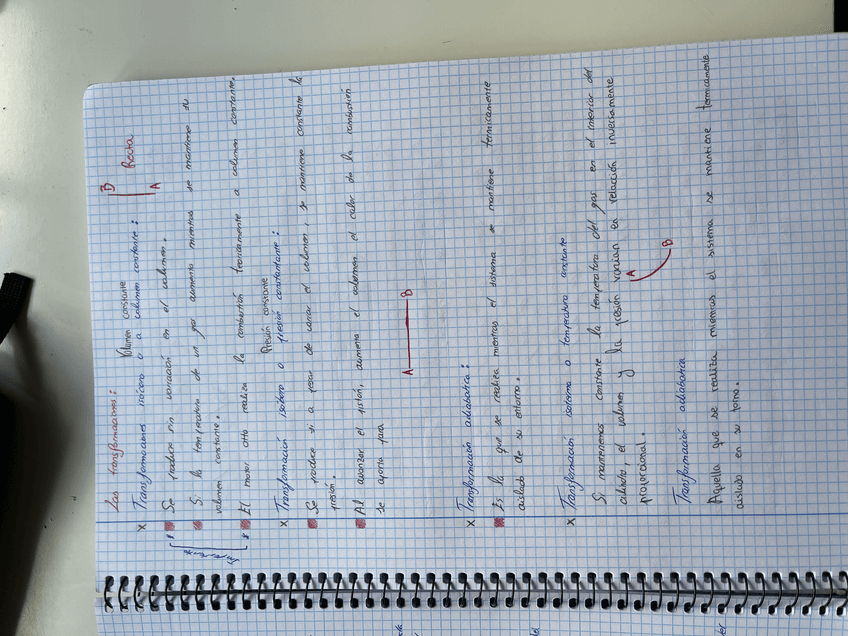 Las transformaciones:
Volumen constante
x Transformaciones isócora o a volumen constante:
B
A
Recta
Se produce sin variación en el volumen.
Si la temperatura de un gas aumenta mientras se mantiene su
volumen constante.
El motor otto realiza la combustión teoricamente a volumen constante.
Presión constante
x Transformación isobara o presión constantante:
Se produce si a pesar de variar el volumen, se mantiene constante la
presión.
Al avanzar el pistón, aumenta el volumen el calor de la combustión
se aporta para
A B
x Transformación adiabatica:
Es la que se realiza mientras el sistema se mantiene termicamente
aislado de su entorno.
x Transformación isoterma o temperatura constante
Si mantenemos constante la temperatura del gas en el interior del
cilindro, el volumen y la presión varian en relacción inversamente
proporcional.
A
B
Transformación adiabatica
Aquella que se realiza mientras el sistema se mantiene termicamente
aislado en su torno.